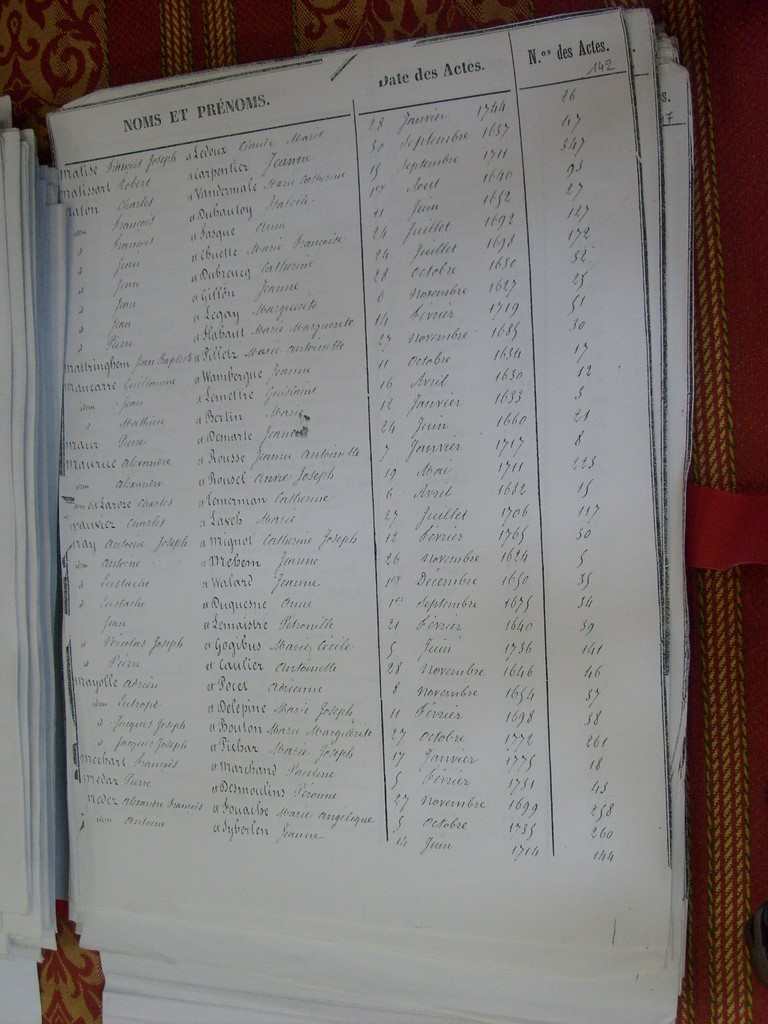 NOMS ET PRÉNOMS. Date des Actes. N.os des Actes.
142
Malise François Joseph et Ledoux Claude Marie 28 Janvier 1744 26
Malissart Robert et Carpentier Jeanne 30 Septembre 1637 47
Malon Charles et Vandermale Marie Catherine 15 Septembre 1711 347
François et Duhautoy 1er Aout 1640 93
François et Pasque Anne 11 Juin 1652 27
Jean et Chuette Marie Françoise 24 Juillet 1692 127
Jean et Dubreucq Catherine 24 Juillet 1698 172
Jean et Gillon Jeanne 28 Octobre 1630 52
Jean et Legay Marguerite 6 Novembre 1627 25
Pierre et Flahaut Marie Marguerite 14 Février 1719 51
Maltringhem Jean Baptiste et Pilletz Marie Antoinette 27 Novembre 1685 30
Maucarré Guillaume et Wambergue Jeanne 11 Octobre 1634 17
Jean et Lemettre Guislaine 16 Avril 1630 12
Mathieu et Bertin Marie 12 Janvier 1633 3
Maur Pierre et Demarle Jeanne 24 Juin 1660 21
Maurice Alexandre et Rousse Jeanne Antoinette 7 Janvier 1717 8
Alexandre et Rousel Anne Joseph 19 Mai 1711 223
Laroze Charles et Lemerman Catherine 6 Avril 1682 15
Mauvier Charles et Lavels Marie 27 Juillet 1706 117
May Antoine Joseph et Mignol Catherine Joseph 12 Février 1765 50
Antoine et Mehem Jeanne 26 Novembre 1624 5
Eustache et Walard Jeanne 1er Décembre 1650 35
Eustache et Duquesne Anne 1er Septembre 1675 34
Jean et Lemaistre Petronille 21 Février 1640 39
Nicolas Joseph et Gogibus Marie Cécile 5 Juin 1736 141
Pierre et Caulier Antoinette 28 Novembre 1646 46
Mayolle Adrien et Pocet Adrienne 8 Novembre 1654 37
Eutrope et Delepine Marie Joseph 11 Février 1698 38
Jacques Joseph et Boulon Marie Marguerite 27 Octobre 1772 261
Jacques Joseph et Pichar Marie Joseph 17 Janvier 1775 18
Mechart François et Marchand Pauline 5 Février 1751 43
Medar Pierre et Desmoulins Péronne 27 Novembre 1699 258
Medez Alexandre François et Fouache Marie Angélique 5 Octobre 1735 260
Antoine et Syberlen Jeanne 14 Juin 1714 144